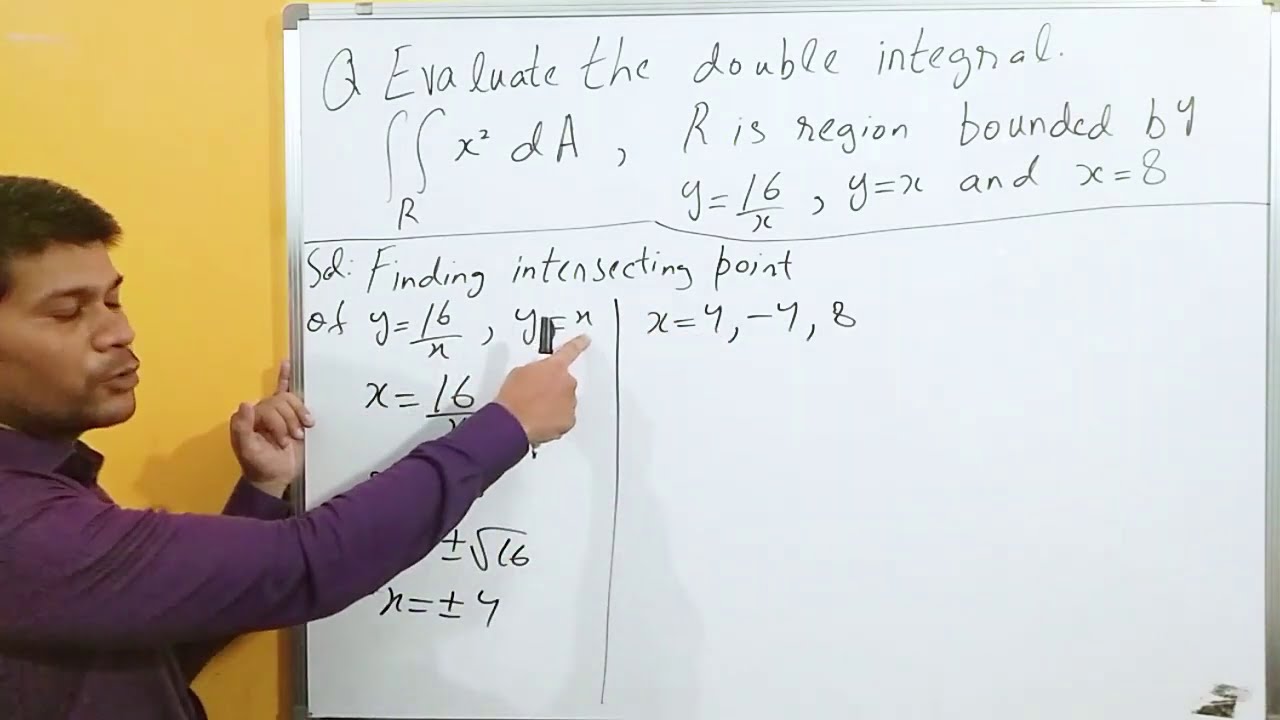 Q Evaluate the double integral.
∬_R x² dA, R is region bounded by
y = 16/x, y = x and x = 8
Sol: Finding intersecting point
of y = 16/x, y = x
x = 16/x
± √16
x = ± 4
x = 4, -4, 8